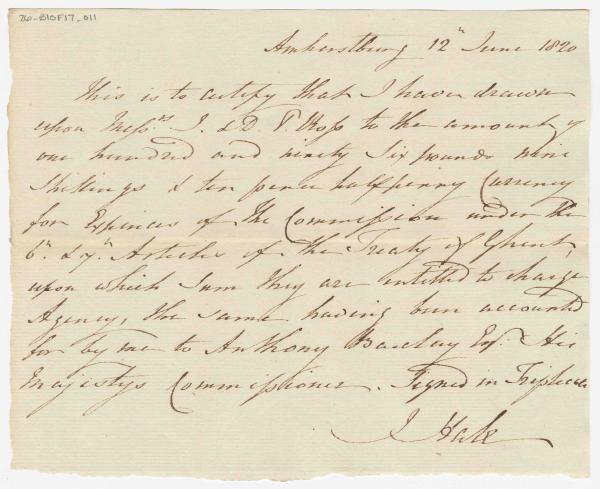 20-B10F17_011
Amherstburg 12th June 1820
This is to certify that I have drawn
upon Messrs. J. & D. T. Ross to the amount of
one hundred and ninety Six pounds nine
Shillings & ten pence halfpenny Currency
for Expences of the Commission under the
6th. & 7th. Articles of the Treaty of Ghent,
upon which Sum they are entitled to charge
Agency, the same having been accounted
for by me to Anthony Barclay Esqr. His
Majestys Commissioner. Signed in Triplicate
J Hale